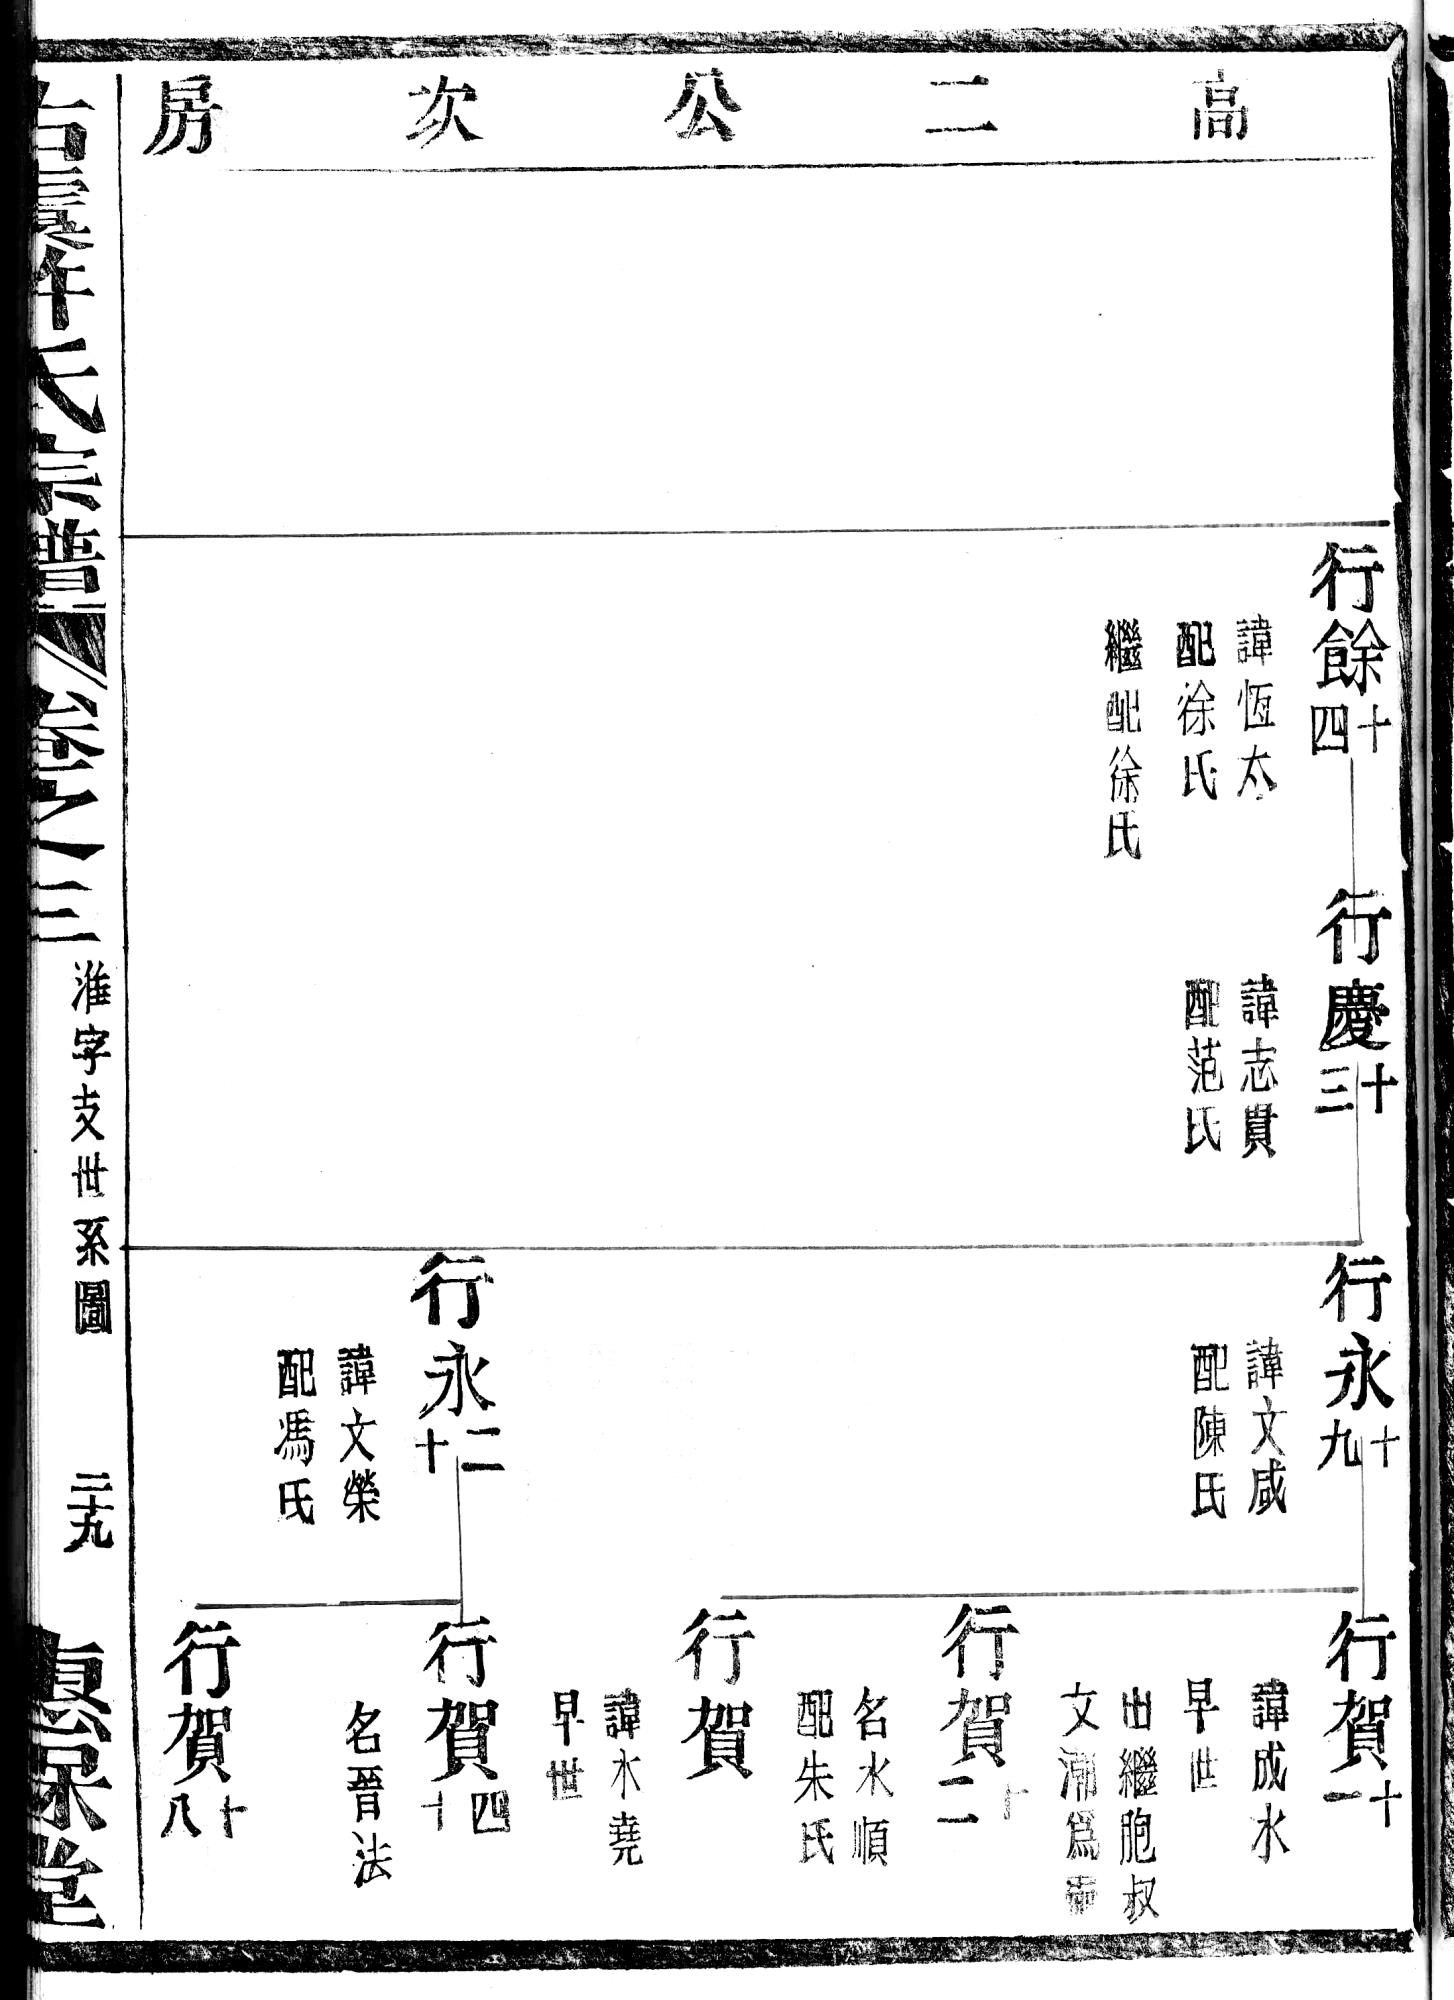 高二公次房
行餘十四
諱恆太
配徐氏
繼配徐氏
行慶十三
諱志貴
配范氏
行永十九
諱文咸
配陳氏
行永二十
諱文榮
配馮氏
行賀十一
諱成水
早世
出繼胞叔
文潮爲
行賀十二
名水順
配朱氏
行賀
諱水堯
早世
行賀四十
名晉法
行賀十八
古虞許氏宗譜 卷之三
淮字支世系圖
二十九
堂